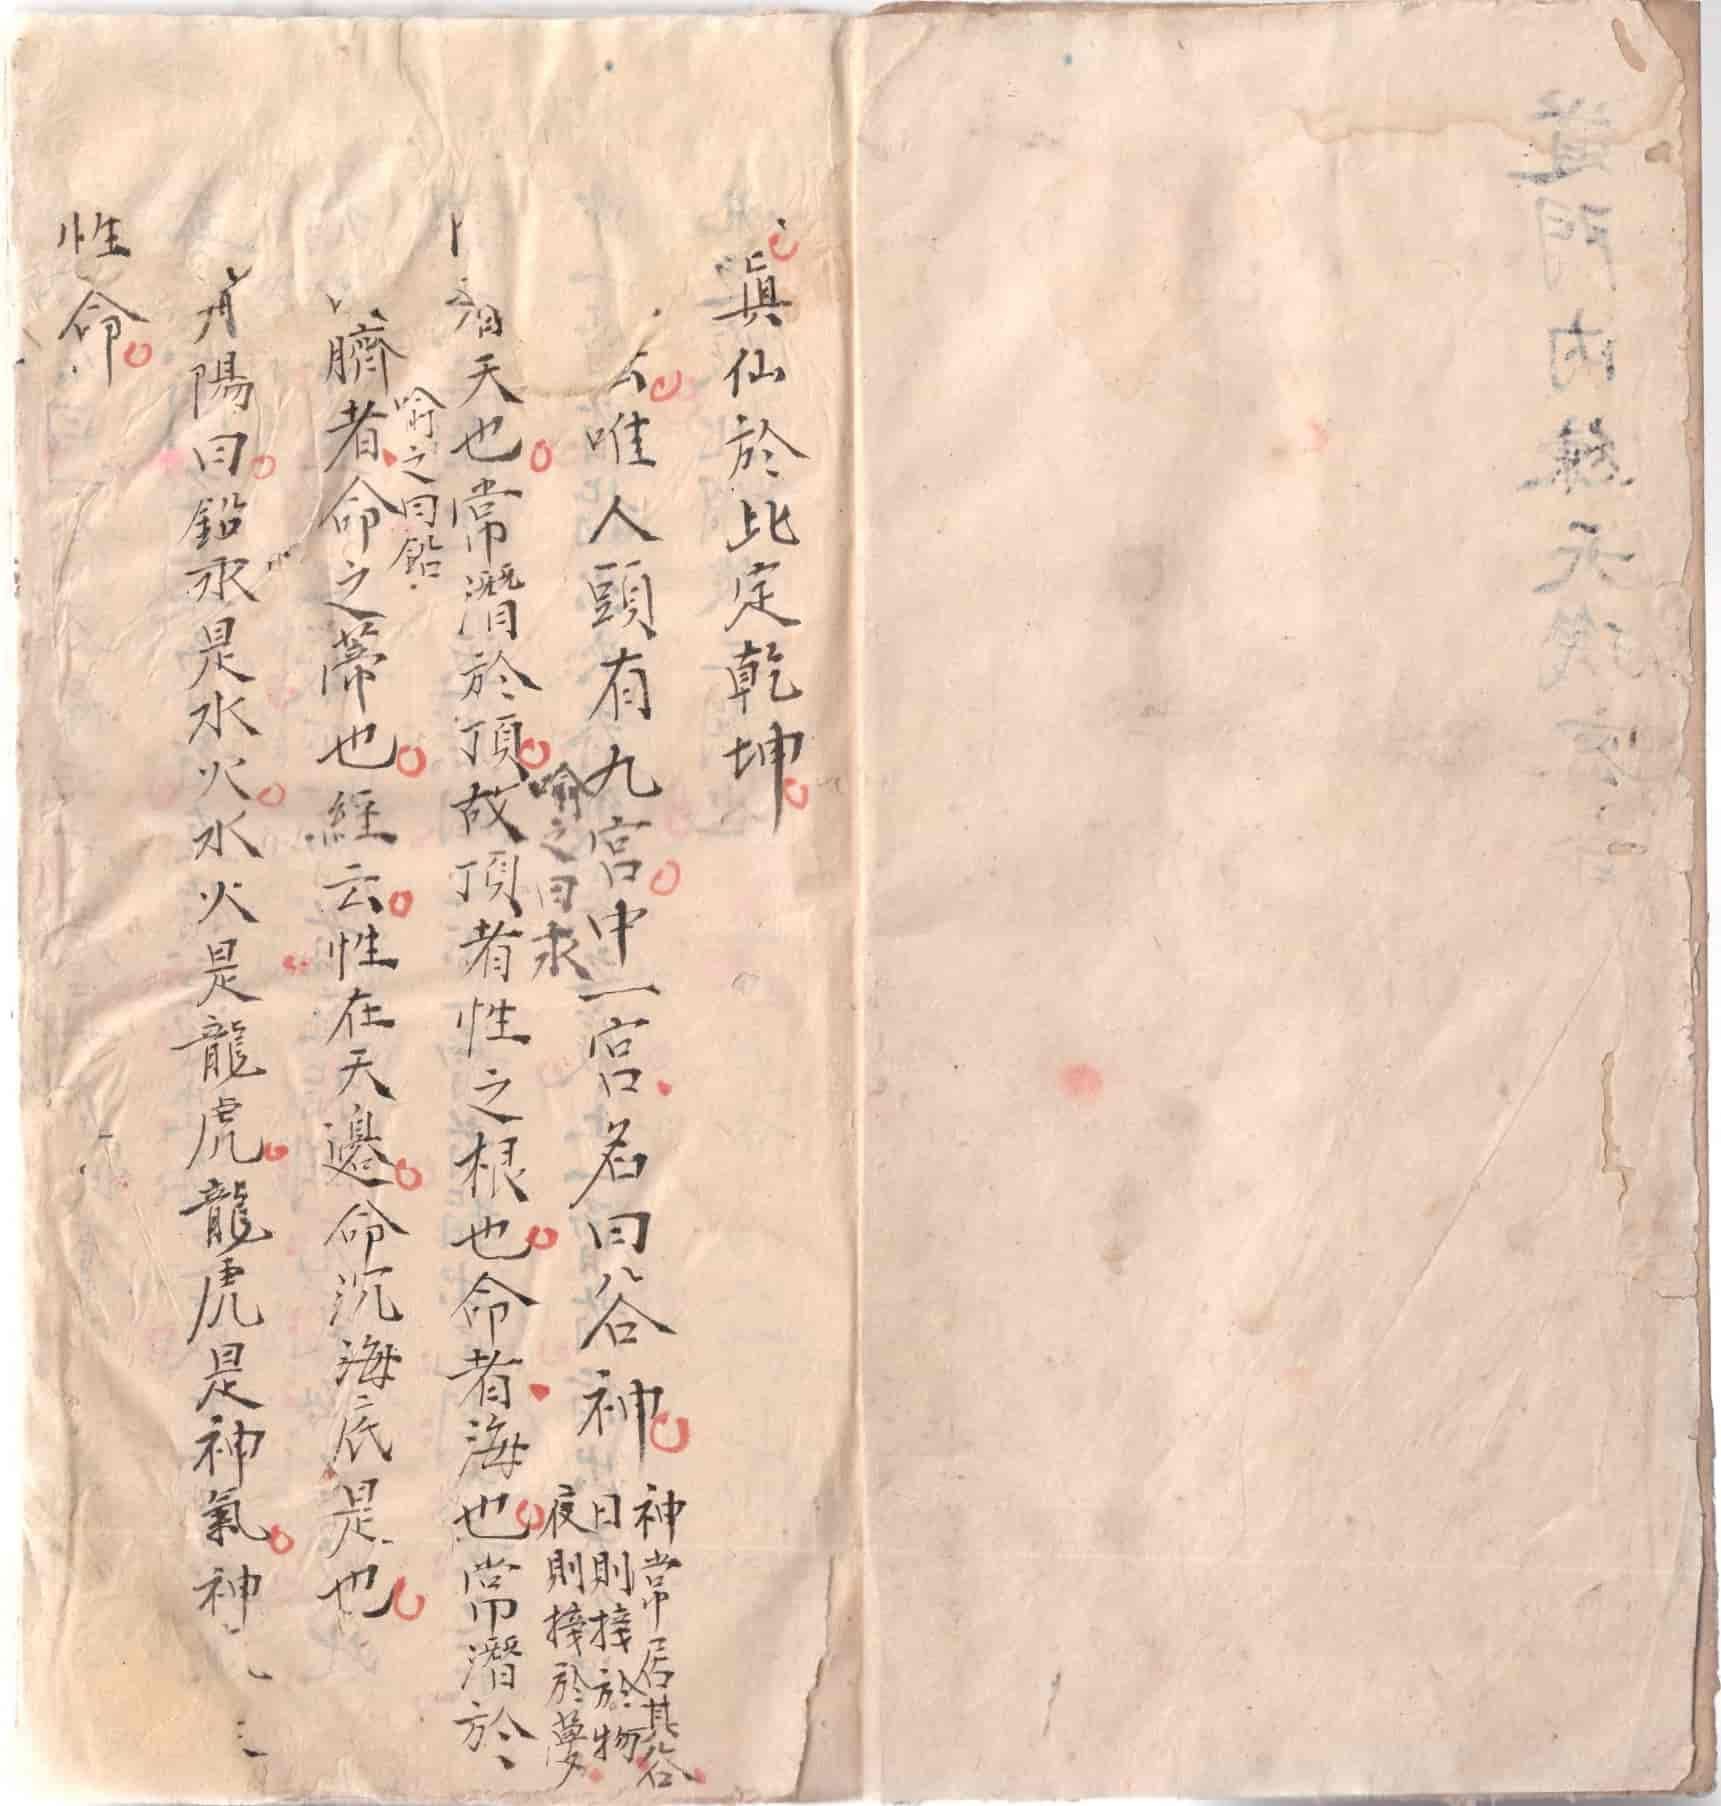 真仙於此定乾坤
云唯人頭有九宮中一宮名曰谷神
神常居其谷
日則接於物
夜則接於夢
喻之曰汞
天也常潛於頂故頂者性之根也命者海也常潛於
喻之曰鉛
臍者命之蒂也經云性在天邊命沉海底是也
丹陽曰鉛汞是水火水火是龍虎龍虎是神氣神
性命